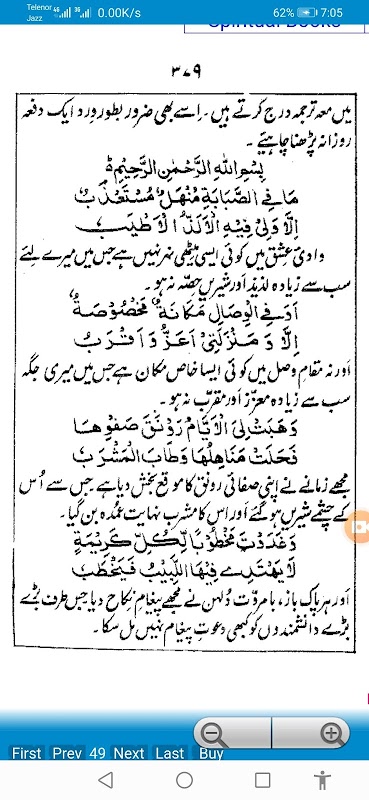 Telenor 4G 3G 0.00K/s 62% 7:05
Jazz
Spiritual Books
۳۷۹
میں معہ ترجمہ درج کرتے ہیں۔ اِسے بھی ضرور بطورِ ورد ایک دفعہ
روزانہ پڑھنا چاہیئے۔
بِسْمِ اللهِ الرَّحْمٰنِ الرَّحِيْمِ
مَا فِي الصَّبَابَةِ مَنْهَلٌ مُسْتَعْذَبٌ
اِلَّا وَلِىْ فِيْهِ الْاَلَذُّ الْاَطْيَبُ
وادیِ عشق میں کوئی ایسی میٹھی نہر نہیں ہے جس میں میرے لئے
سب سے زیادہ لذیذ اور شیریں حِصّہ نہ ہو۔
اَوْ فِي الْوِصَالِ مَكَانَةٌ مَخْصُوْصَةٌ
اِلَّا وَ مَنْزِلَتِىْ اَعَزُّ وَ اَقْرَبُ
اَور نہ مقامِ وصل میں کوئی ایسا خاص مکان ہے جس میں میری جگہ
سب سے زیادہ معزّز اور مقرّب نہ ہو۔
وَهَبَتْ لِىَ الْاَيَّامُ رَوْنَقَ صَفْوِهَا
فَحَلَتْ مَنَاهِلُهَا وَطَابَ الْمَشْرَبُ
مجھے زمانے نے اپنی صفائی رونق کا موقع بخش دیا ہے جس سے اُس
کے چشمے شیریں ہو گئے اَور اس کا مشرب نہایت عُمدہ بن گیا۔
وَغَدَوْتُ مَخْطُوْبًا لِكُلِّ كَرِيْمَةٍ
لَا يَهْتَدِىْ فِيْهَا اللَّبِيْبُ فَيَخْطُبُ
اَور ہر پاک باز، بامروّت دُلہن نے مجھے پیغامِ نکاح دیا جس طرف بڑے
بڑے دانشمندوں کو کبھی دعوتِ پیغام نہیں مل سکا۔
First Prev 49 Next Last Buy